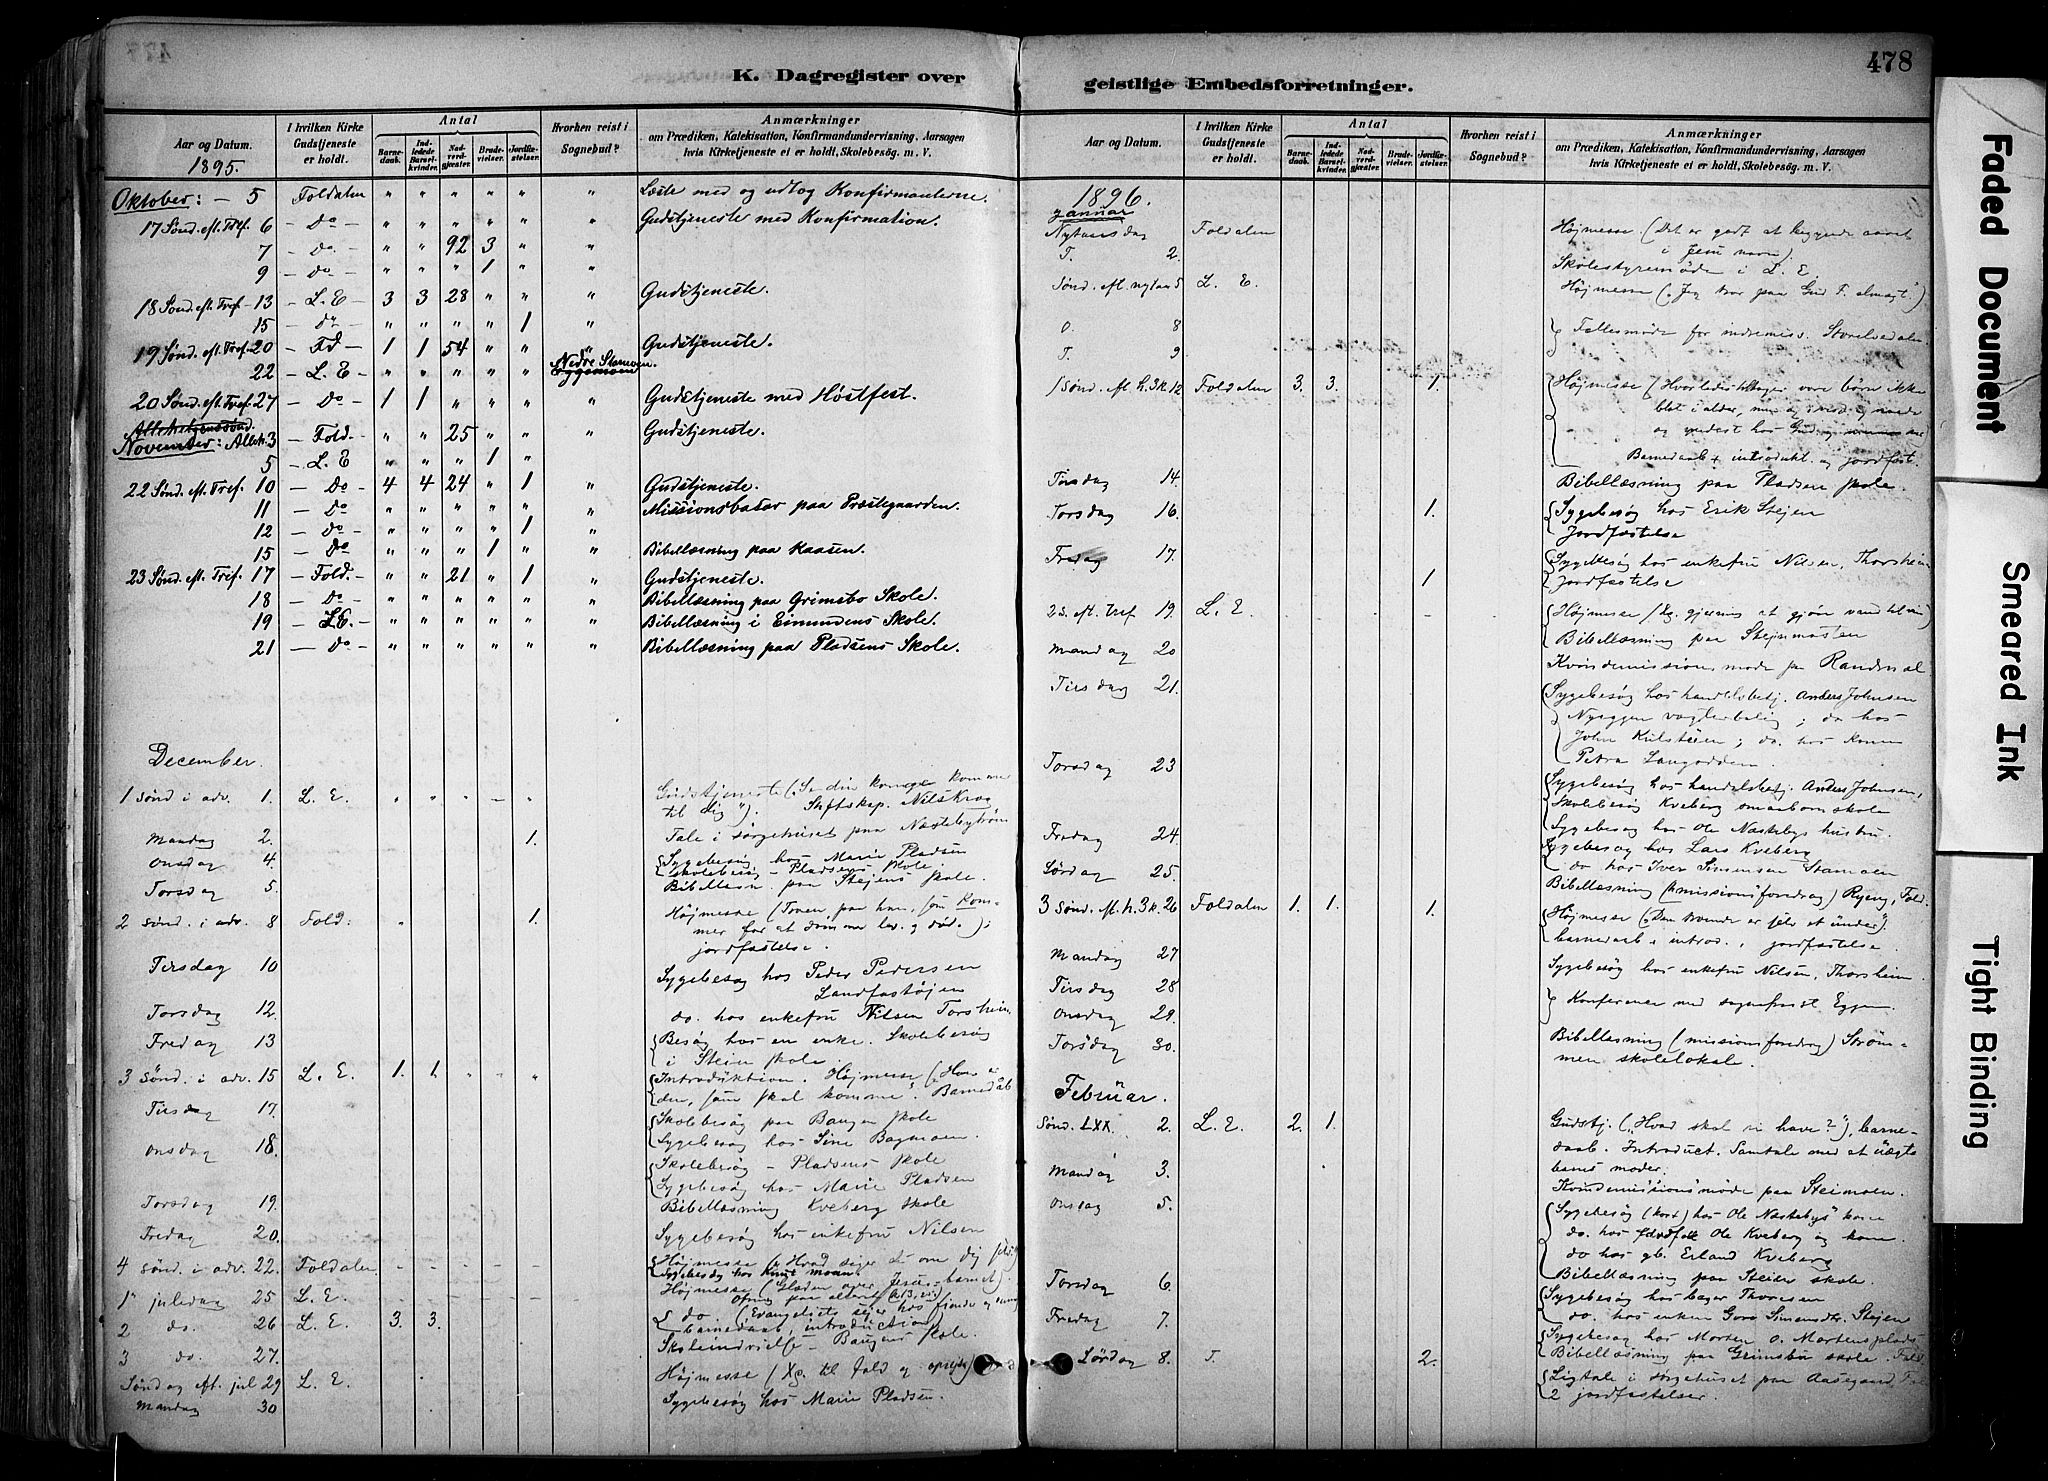 K. Dagregister over
geistlige Embedsforretninger.
478
Aar og Datum.
I hvilken Kirke Gudstjeneste er holdt.
Antal
Barnedaab.
Indledede Barselkvinder.
Nadverdgjæster.
Brudevielser.
Jordfæstelser.
Hvorhen reist i Sognebud?
Anmærkninger
om Prædiken, Katekisation, Konfirmandundervisning, Aarsagen
hvis Kirketjeneste ei er holdt, Skolebesøg. m. V.
1895.
Oktober: — 5 Foldalen " " " " " " Læste med og udtog Konfirmanterne.
17 Sønd. eft. Tref. 6 — Do — " " " " " " Gudstjeneste med Konfirmation.
7 — do — " " 92 3 " "
9 — do — " " " 1 " "
18 Sønd. eft. Tref. 13 — L. E — 3 3 28 " " " Gudstjeneste.
15 — do — " " " " 1 "
19 Sønd. eft. Tref. 20 — Fd — 1 1 54 " " " Gudstjeneste.
22 — L. E — " " " " " Nedre Stamoen.
20 Sønd. eft. Tref. 27 — Do — 1 1 " " " " Gudstjeneste med Høstfest.
November: Alleh. 3 — Fold. — " " 25 " " " Gudstjeneste.
5 — L. E — " " " 1 "
22 Sønd. eft. Tref. 10 — Do — 4 4 24 " 1 " Gudstjeneste.
11 — Do — " " " " " " Missionsbasar paa Præstegaarden.
12 — do — " " " " 1 "
15 — Do — " " " 1 " " Bibellæsning paa Kaasen.
23 Sønd. eft. Tref. 17 — Fold. — " " 21 " 1 " Gudstjeneste.
18 — Do — " " " " " " Bibellæsning paa Grimsbo Skole.
19 — L.E. — " " " " " " Bibellæsning i Einundens Skole.
21 — Do — " " " " " " Bibellæsning paa Pladsens Skole.
December.
1 sønd i adv. 1. L. E. " " " — " Gudstjeneste („Se din konge kommer
til dig"). Stiftskap. Nils Krag
Mandag 2. 1. Tale i sørgehuset paa Næstebytrøen
Onsdag 4. Sygebesøg hos Marie Pladsen
Skolebesøg — Pladsens skole.
Torsdag 5. Bibellæsn. paa Steiens skole.
2 sønd. i adv. 8 Fold. " 1. Højmesse (Troen paa ham, som kommer
for at dømme lev. og død.);
jordfæstelse.
Tirsdag 10 Sygebesøg hos Peder Pedersen
Torsdag 12. do. hos enkefru Nilsen Torsheim
Fredag 13 Besøg hos en enke. Skolebesøg
i Steien skole.
3 sønd. i adv. 15 L. E. 1. 1. " " " Introduktion. Højmesse („Han er
den, som skal komme". Barnedåb
Tirsdag 17. Skolebesøg paa Baugen skole
Sygebesøg hos Sine Bagmoen.
Onsdag 18. Skolebesøg — Pladsens skole
Sygebesøg hos Marie Pladsen
Torsdag 19. Bibellæsning Kveberg skole
Fredag 20. Sygebesøg hos enkefru Nilsen
4 sønd. i adv. 22. Foldalen — — — — — Højmesse („Hvad siger du om dig selv?
Sygebesøg hos Knut Moen
1ᵉ juledag 25 L. E. Højmesse (Glæden over Jesus-barnet).
2 do. 26 L. E. 3. 3. do (Evangeliets sejer hos fiender og
barnedaab, introduction
3 do. 27. Skoleindvielse — Baugens skole.
Søndag eft. jul 29 L. E. Højmesse (Xs. til fald og opreisn)
Mandag 30 Sygebesøg hos Marie Pladsen.
Aar og Datum.
I hvilken Kirke Gudstjeneste er holdt.
Antal
Barnedaab.
Indledede Barselkvinder.
Nadverdgjæster.
Brudevielser.
Jordfæstelser.
Hvorhen reist i Sognebud?
Anmærkninger
om Prædiken, Katekisation, Konfirmandundervisning, Aarsagen
hvis Kirketjeneste ei er holdt, Skolebesøg. m. V.
1896.
Januar
Nytaarsdag Foldalen Højmesse. (Det er godt at begynde aaret
i Jesu navn).
T. 2. Skolestyremøde i L. E.
Sønd. eft. nytaar 5 L. E. Højmesse („Jeg tror paa Gud F. almægt.")
O. 8
T. 9 Fællesmøde for indremiss. Storelvedalen
1 Sønd. eft. h. 3 k. 12 Foldalen 3. 3. 1. Højmesse (Hvorledes tiltager vore børn ikke
blot i alder, men og i visd. og naade
Barnedaab + introdukt. og jordfæst.
Tirsdag 14. Bibellæsning paa Pladsen skole.
Torsdag 16. 1. Sygebesøg hos Erik Stejen
Jordfæstelse
Fredag 17. 1 Sygebesøg hos enkefru Nilsen, Thorsheim
Jordfæstelse
2 s. eft. Tref 19. L. E. — Højmesse (Xs. gjerning at gjøre vand til vin)
Bibellæsning paa Stejnmoen
Mandag 20 Kvindemissionsmøde paa Randmæl
Tirsdag 21. Sygebesøg hos handelsbetj. Anders Johnsen
Torsdag 23 Sygebesøg hos handelsbetj. Anders Johnsen,
Skolebesøg Kveberg smaabornskole
Fredag 24. Sygebesøg hos Ole Næstebys hustru.
Sygebesøg hos Lars Kveberg
Lørdag 25. do hos Iver Simensen Stamoen
Bibellæsning (missionsforedrag) Ryeng, Fold.
3 Sønd. eft. h. 3 k. 26 Foldalen 1. 1. 1. Højmesse („Den troende er selv et under").
barnedaab & introd., jordfæstelse.
Mandag 27 Sygebesøg hos enkefru Nilsen, Thorsheim.
Tirsdag 28
Onsdag 29. Konferencer med sogneprest Eggen.
Torsdag 30. Bibellæsning (missionsforedrag) Strømmen
skolelokale.
Februar.
Sønd. LXX. 2. L. E. 2. 1. Gudstj. („Hvad skal vi have?"), barnedaab.
Introduct. Samtale med et uægte
barns moder.
Mandag 3. Kvindemissionsmøde paa Steimoen.
Onsdag 5. Sygebesøg (kort) hos Ole Næstebys kone
do. hos Ole Kveberg og kone
do hos gb. Erland Kveberg
Bibellæsning paa Steien skole.
Torsdag 6. Sygebesøg hos bager Thoresen
do. hos enken Goro Simensdtr. Stejen
Fredag 7. Sygebesøg hos Morten O. Mortensplads
Bibellæsning paa Grimsbu skole. Fold.
Lørdag 8. T. 2. Ligtale i sørgehuset paa Aasegaard, Fold
2 jordfæstelser.
Faded Document
Smeared Ink
Tight Binding